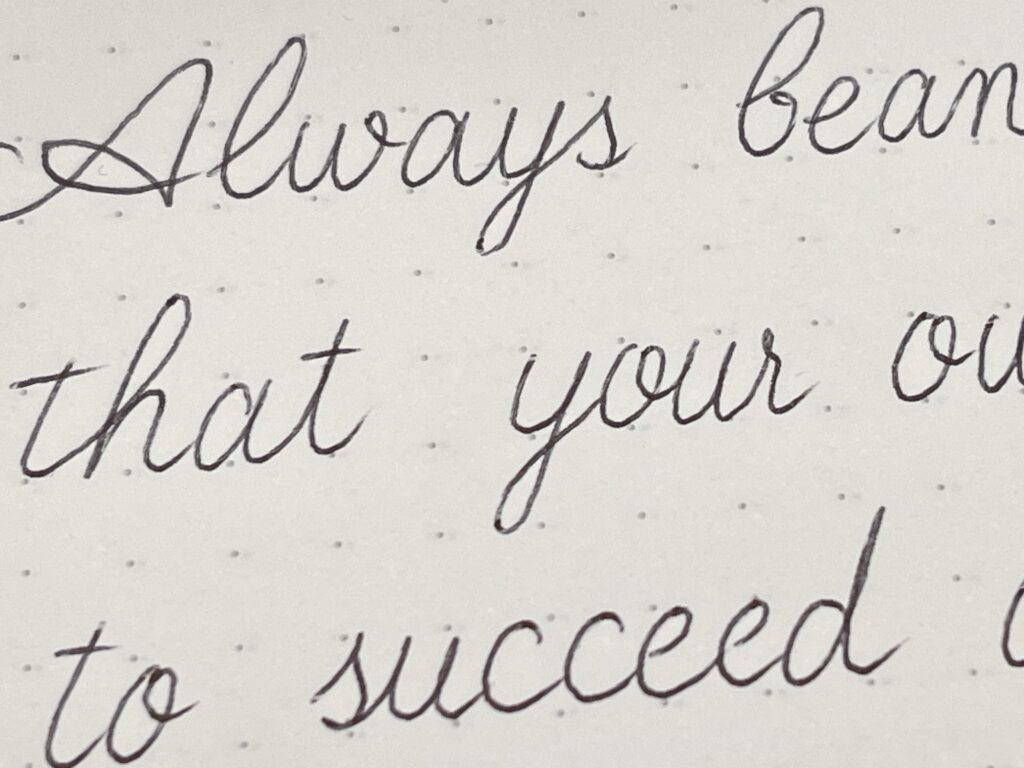 Always bean
that your
to succeed